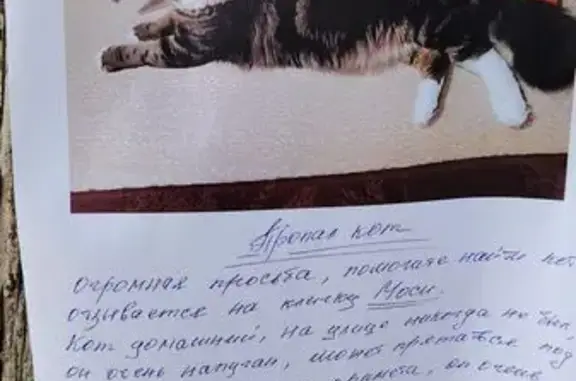 Пропал кот
огромная просьба, помогите найти кот
отзывается на кличку Моси.
Кот домашний, на улице никогда не был,
он очень напуган, может прятаться под
он очень